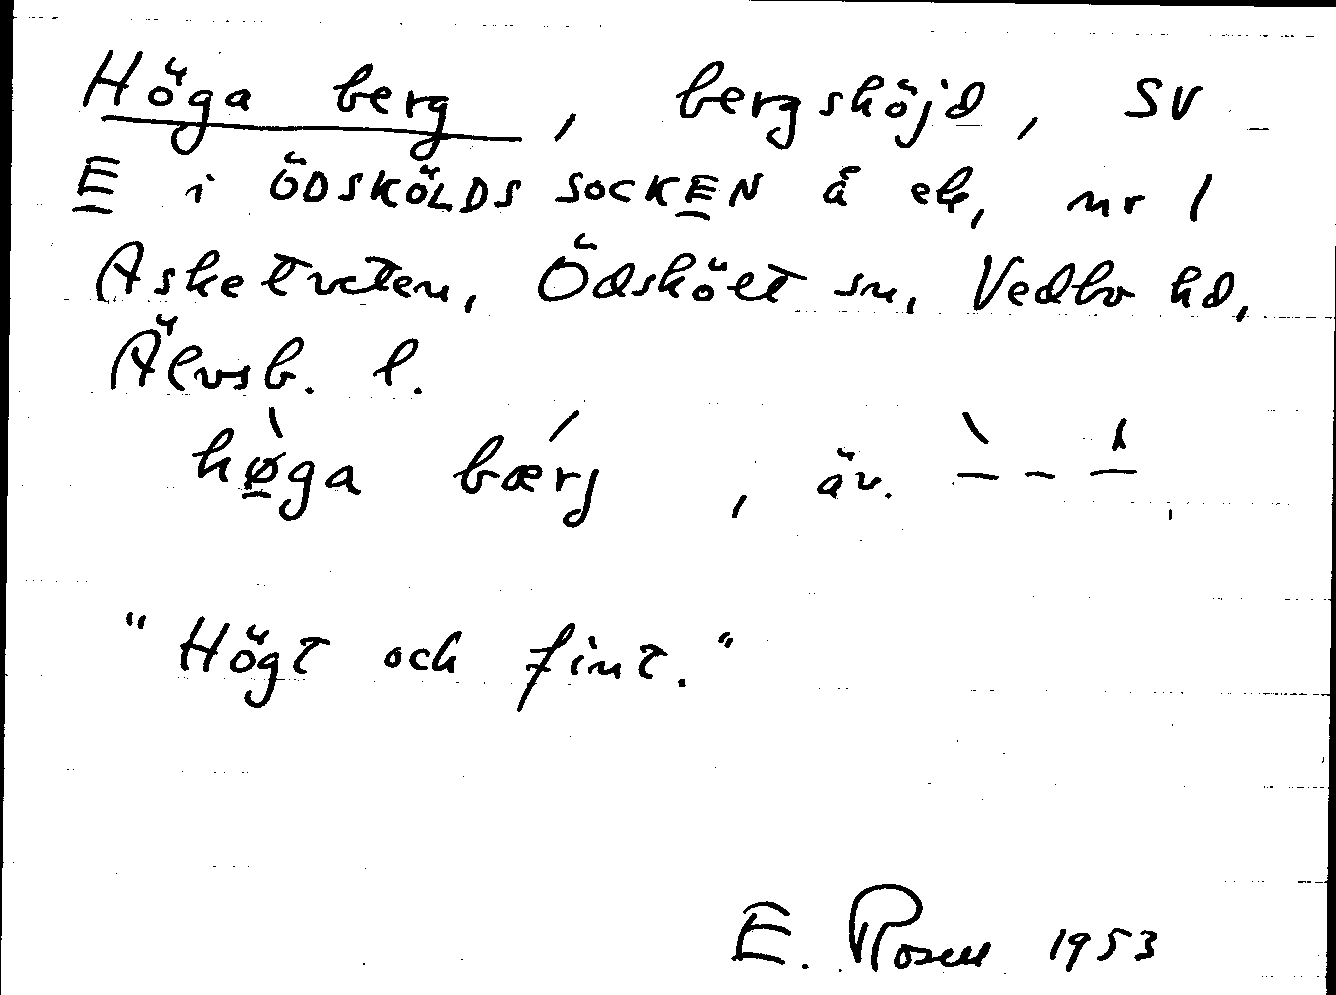 Höga berg, bergshöjd, SV
E i ÖDSKÖLDS SOCKEN å ek, nr 1
Asketveten, Ödskölt sn, Vedbo hd,
Älvsb. l.
hø̱̀ga bærj, äv.
"Högt och fint."
E. Rosell 1953